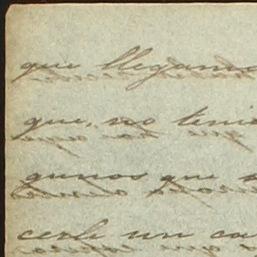 que llegamos
que, no teni
gunos que s
cerle un ca